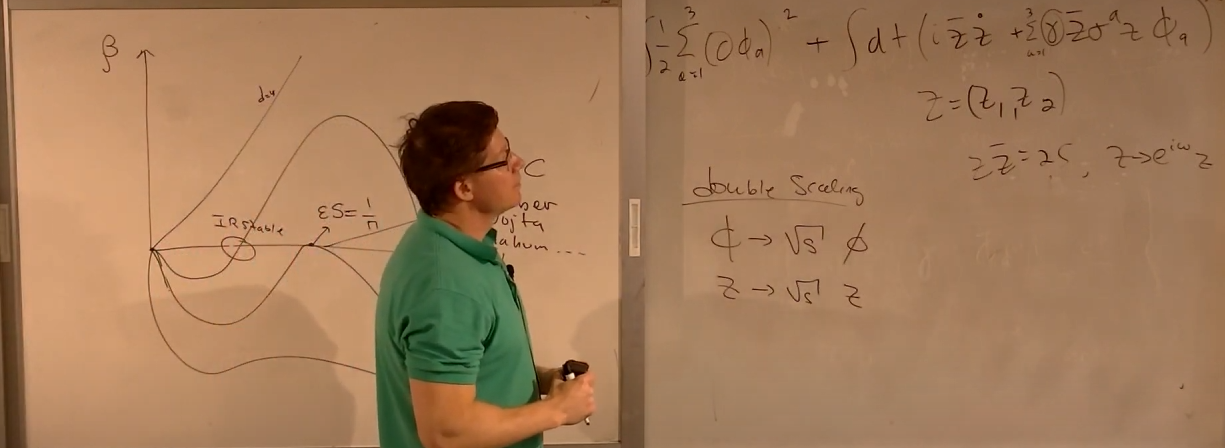 β
d=4
IR stable
εS=1/π
C
ber
ojta
ahum ...
∫ 1/2 Σ_{a=1}^{3} (∂ϕ_a)^2 + ∫dt (i z̄ ż + Σ_{a=1}^{3} γ z̄ σ^a z ϕ_a)
z = (z_1, z_2)
z z̄ = 2S, z → e^{iω} z
double scaling
ϕ → √S ϕ
z → √S z